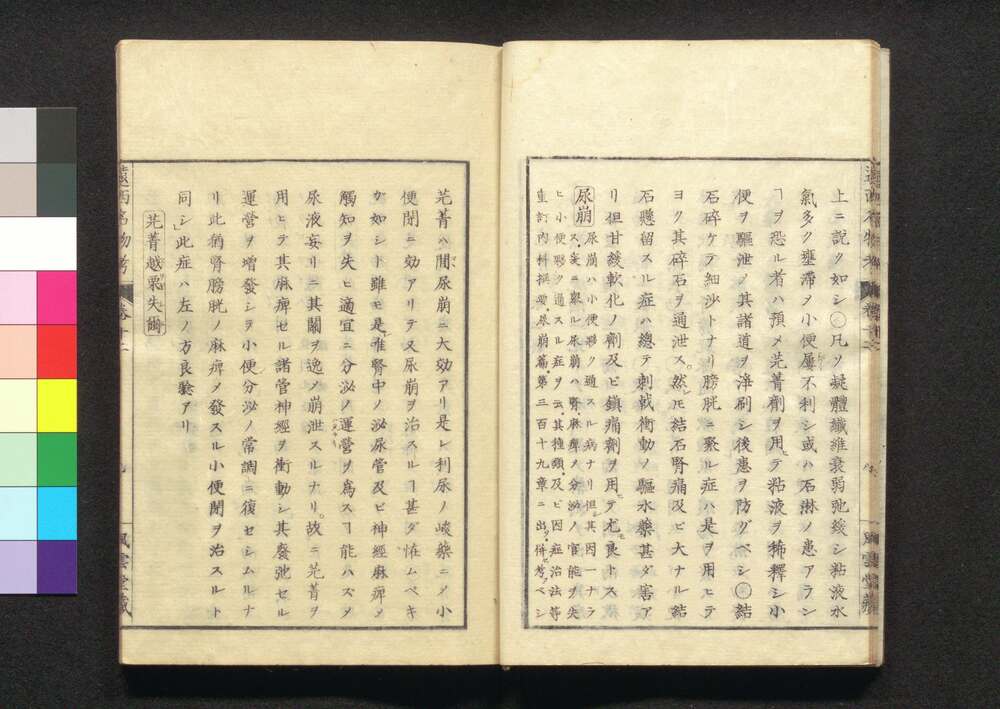 上ニ説ク如シ〇凡ソ凝體纖維衰弱弛緩シ粘液水
氣多ク壅滯メ小便屢不利シ或ハ石淋ノ患アラン
ヿヲ恐ル者ハ預メ芫菁劑ヲ用ヒテ粘液ヲ稀釋シ小
便ヲ驅泄メ其諸道ヲ淨刷シ後患ヲ防グベシ〇結
石碎ケテ細沙トナリ膀胱ニ聚ル症ハ是ヲ用ヒテ
ヨク其碎石ヲ通泄ス。然𪜈結石腎痛及ヒ大ナル結
石懸留スル症ハ總テ刺戟衝動ノ驅水藥甚ダ害ア
リ但甘緩軟化ノ劑及ヒ鎮痛劑ヲ用ヒテ尤良トス
尿崩 尿崩ハ小便夥ク通スル病ナリ但其因一ナラ
ス、爰ニ擧ル尿崩ハ腎、麻痺メ分泌ノ官能ヲ失
ヒ小便夥ク通スル症ヲ云其種類及ヒ因症治法等
重訂内科撰要、尿崩篇、第三百十九章ニ出、併考フベシ
遠西名物考 卷十二 風雲堂藏
芫菁ハ間尿崩ニ大効アリ是レ利尿ノ峻藥ニメ小
便閉ニ効アリテ又尿崩ヲ治スルヿ甚ダ恠ムベキ
ガ如シト雖モ是唯腎中ノ泌尿管及ビ神經麻痺メ
觸知ヲ失ヒ適宜ニ分泌ノ運營ヲ爲スヿ能ハズメ
尿液妄リニ其關ヲ逸メ崩泄スルナリ。故ニ芫菁ヲ
用ヒテ其麻痺セル諸管神經ヲ衝動シ其廢弛セル
運營ヲ增發シテ小便分泌ノ常調ニ復セシムルナ
リ此猶腎膀胱ノ麻痺メ發スル小便閉ヲ治スルト
同シ」此症ハ左ノ方良驗アリ
芫菁越栗失爾
遠西名物考 卷十二 九 風雲堂藏